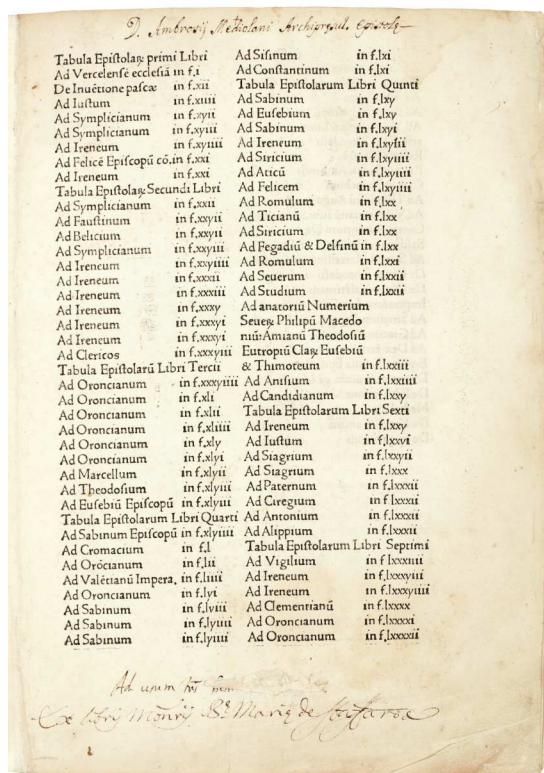 D. Ambrosij Mediolani Archipręsul. Epistolę
Tabula Epistolaꝝ primi Libri
Ad Vercelensē ecclesiā in f.i
De Inuētione pascæ in f.xii
Ad Iustum in f.xiiii
Ad Symplicianum in f.xyii
Ad Symplicianum in f.xyiii
Ad Ireneum in f.xyiiii
Ad Felicē Episcopū cō.in f.xxi
Ad Ireneum in f.xxi
Tabula Epistolaꝝ Secundi Libri
Ad Symplicianum in f.xxii
Ad Faustinum in f.xxyii
Ad Belicium in f.xxyii
Ad Symplicianum in f.xxyiii
Ad Ireneum in f.xxyiiii
Ad Ireneum in f.xxxii
Ad Ireneum in f.xxxiii
Ad Ireneum in f.xxxy
Ad Ireneum in f.xxxyi
Ad Ireneum in f.xxxyi
Ad Clericos in f.xxxyiii
Tabula Epistolarū Libri Tercii
Ad Oroncianum in f.xxxyiiii
Ad Oroncianum in f.xli
Ad Oroncianum in f.xlii
Ad Oroncianum in f.xliiii
Ad Oroncianum in f.xly
Ad Oroncianum in f.xlyi
Ad Marcellum in f.xlyii
Ad Theodosium in f.xlyiii
Ad Eusebiū Episcopū in f.xlyiii
Tabula Epistolarum Libri Quarti
Ad Sabinum Episcopū in f.xlyiiii
Ad Cromacium in f.l
Ad Orōcianum in f.lii
Ad Valētianū Impera. in f.liiii
Ad Oroncianum in f.lyi
Ad Sabinum in f.lviii
Ad Sabinum in f.lyiiii
Ad Sabinum in f.lyiiii
Ad Sisinum in f.lxi
Ad Constantinum in f.lxi
Tabula Epistolarum Libri Quinti
Ad Sabinum in f.lxy
Ad Eusebium in f.lxy
Ad Sabinum in f.lxyi
Ad Ireneum in f.lxyiii
Ad Siricium in f.lxyiiii
Ad Aticū in f.lxyiiii
Ad Felicem in f.lxyiiii
Ad Romulum in f.lxx
Ad Ticianū in f.lxx
Ad Siricium in f.lxx
Ad Fegadiū & Delfinū in f.lxx
Ad Romulum in f.lxxi
Ad Seuerum in f.lxxii
Ad Studium in f.lxxii
Ad anatoriū Numerium
Seueꝝ Philipū Macedo
niū: Amianū Theodosiū
Eutropiū Claꝝ Eusebiū
& Thimoteum in f.lxxiii
Ad Anisium in f.lxxiiii
Ad Candidianum in f.lxxy
Tabula Epistolarum Libri Sexti
Ad Ireneum in f.lxxy
Ad Iustum in f.lxxvi
Ad Siagrium in f.lxxyii
Ad Siagrium in f.lxxx
Ad Paternum in f.lxxxii
Ad Ciregium in f.lxxxii
Ad Antonium in f.lxxxii
Ad Alippium in f.lxxxii
Tabula Epistolarum Libri Septimi
Ad Vigilium in f.lxxxiiii
Ad Ireneum in f.lxxxyiii
Ad Ireneum in f.lxxxyiiii
Ad Clementianū in f.lxxxx
Ad Oroncianum in f.lxxxxi
Ad Oroncianum in f.lxxxxii
Ad usum
Ex libris Monrij Stę Marię de